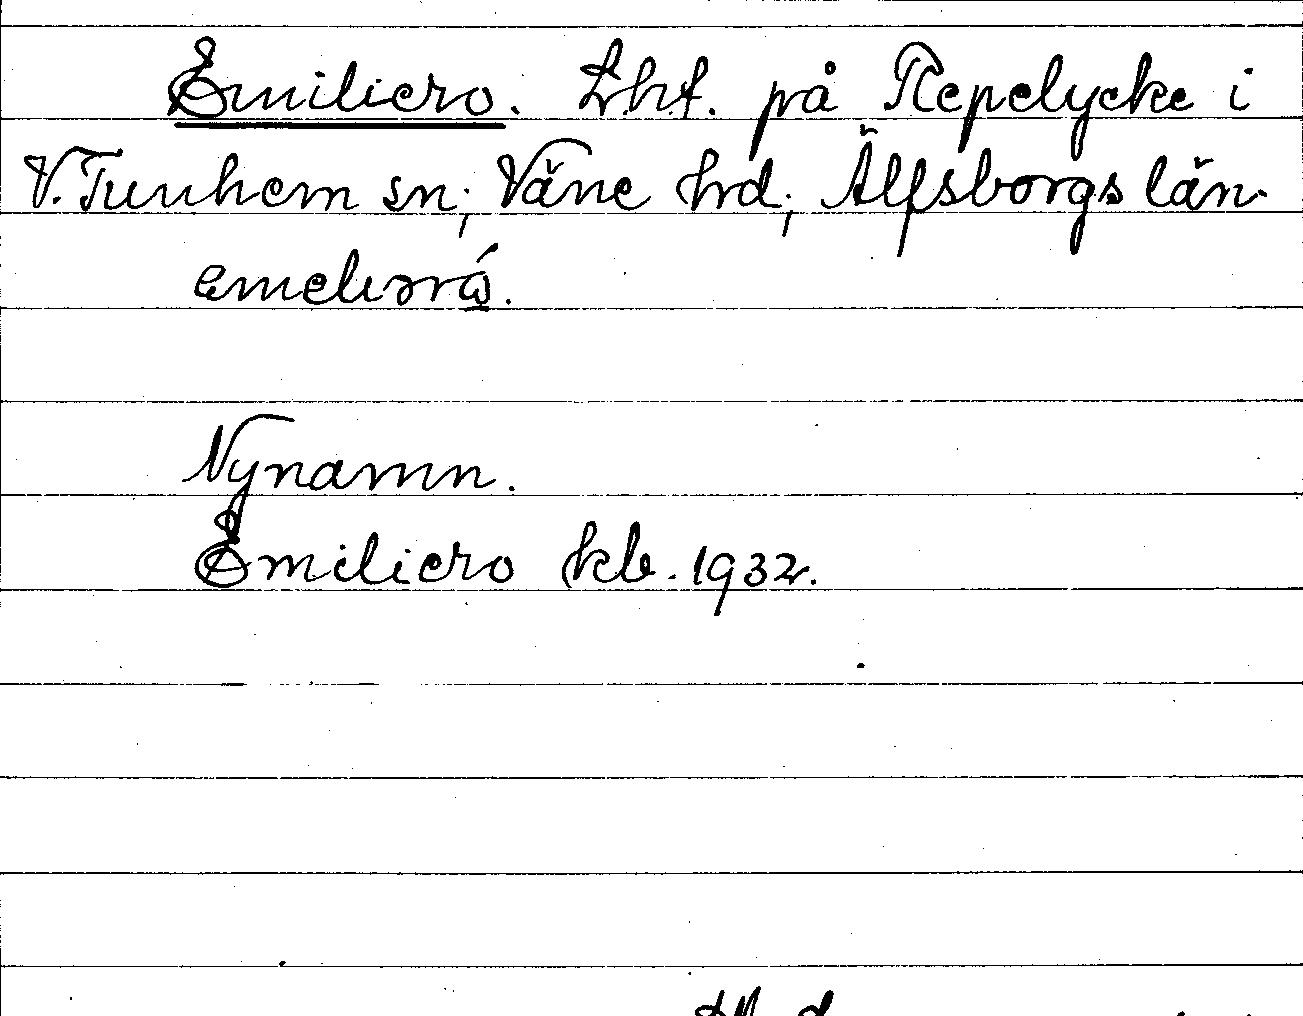 Emiliero. Lht. på Repelycke i
V. Tunhem sn; Väne hrd; Älfsborgs län.
Nynamn.
Emiliero kb. 1932.